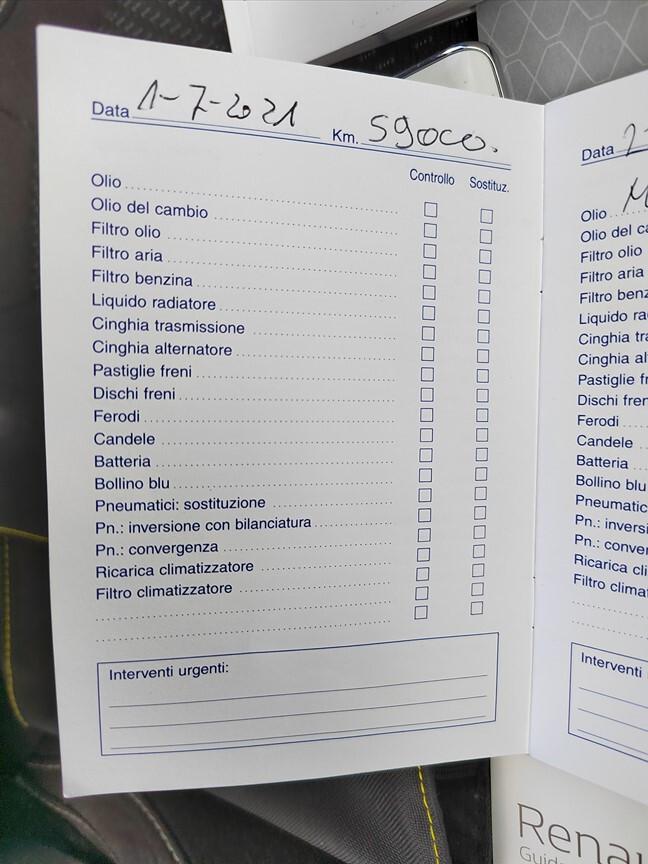 Data 1-7-2021 Km. 59000.
Controllo Sostituz.
Olio
Olio del cambio
Filtro olio
Filtro aria
Filtro benzina
Liquido radiatore
Cinghia trasmissione
Cinghia alternatore
Pastiglie freni
Dischi freni
Ferodi
Candele
Batteria
Bollino blu
Pneumatici: sostituzione
Pn.: inversione con bilanciatura
Pn.: convergenza
Ricarica climatizzatore
Filtro climatizzatore
Interventi urgenti:
Data
Olio
Olio del ca
Filtro olio
Filtro aria
Filtro benz
Liquido ra
Cinghia tra
Cinghia al
Pastiglie fr
Dischi fren
Ferodi
Candele
Batteria
Bollino blu
Pneumatic
Pn.: inversi
Pn.: conver
Ricarica cli
Filtro climat
Interventi
Renau
Guid